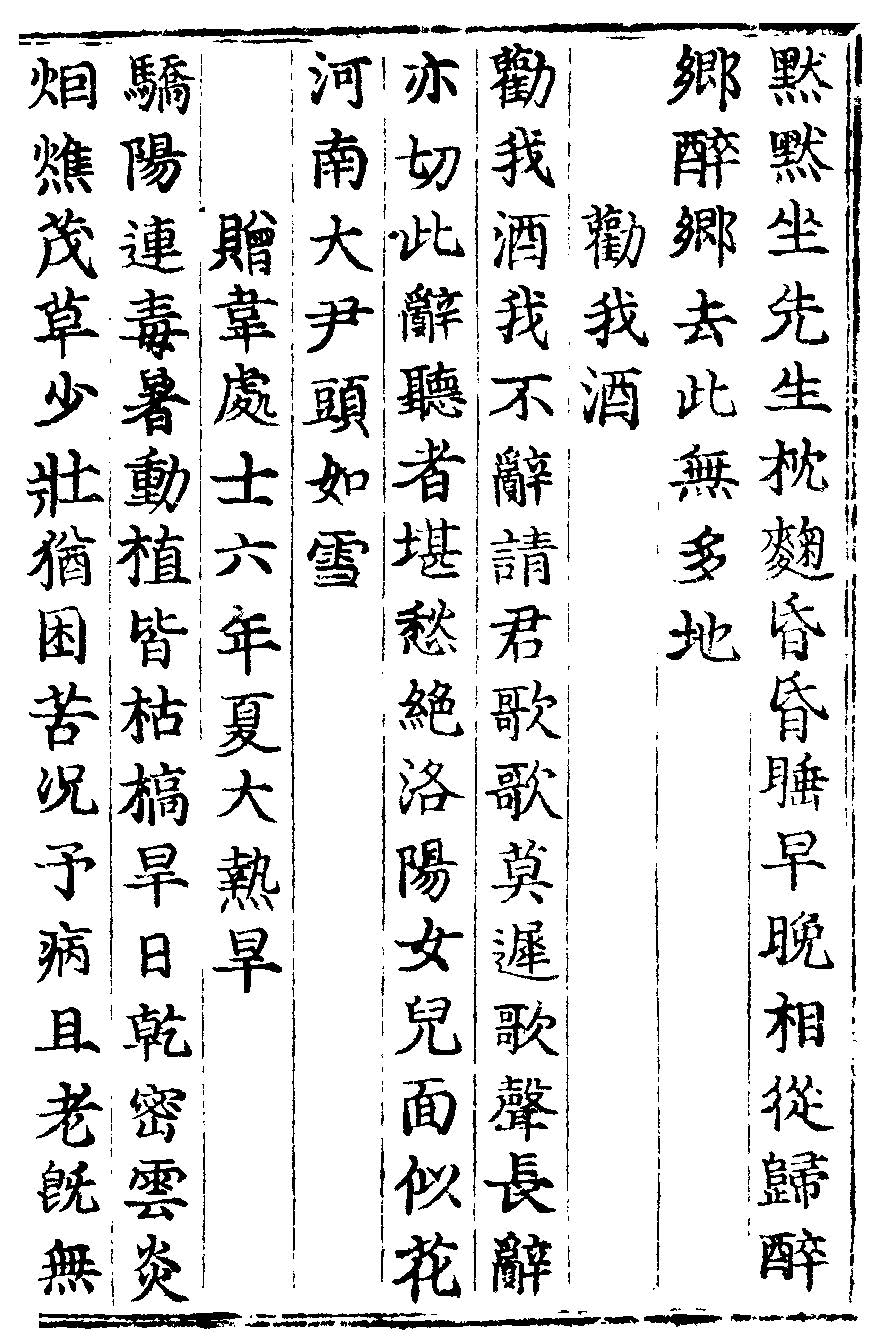 黙黙坐先生枕麴昏昏睡早晚相從歸醉
鄉醉鄉去此無多地
勸我酒
勸我酒我不辭請君歌歌莫遲歌聲長辭
亦切此辭聽者堪愁絶洛陽女兒面似花
河南大尹頭如雪
贈韋處士六年夏大熱旱
驕陽連毒暑動植皆枯槁旱日乾密雲炎
烟燋茂草少壯猶困苦况予病且老旣無